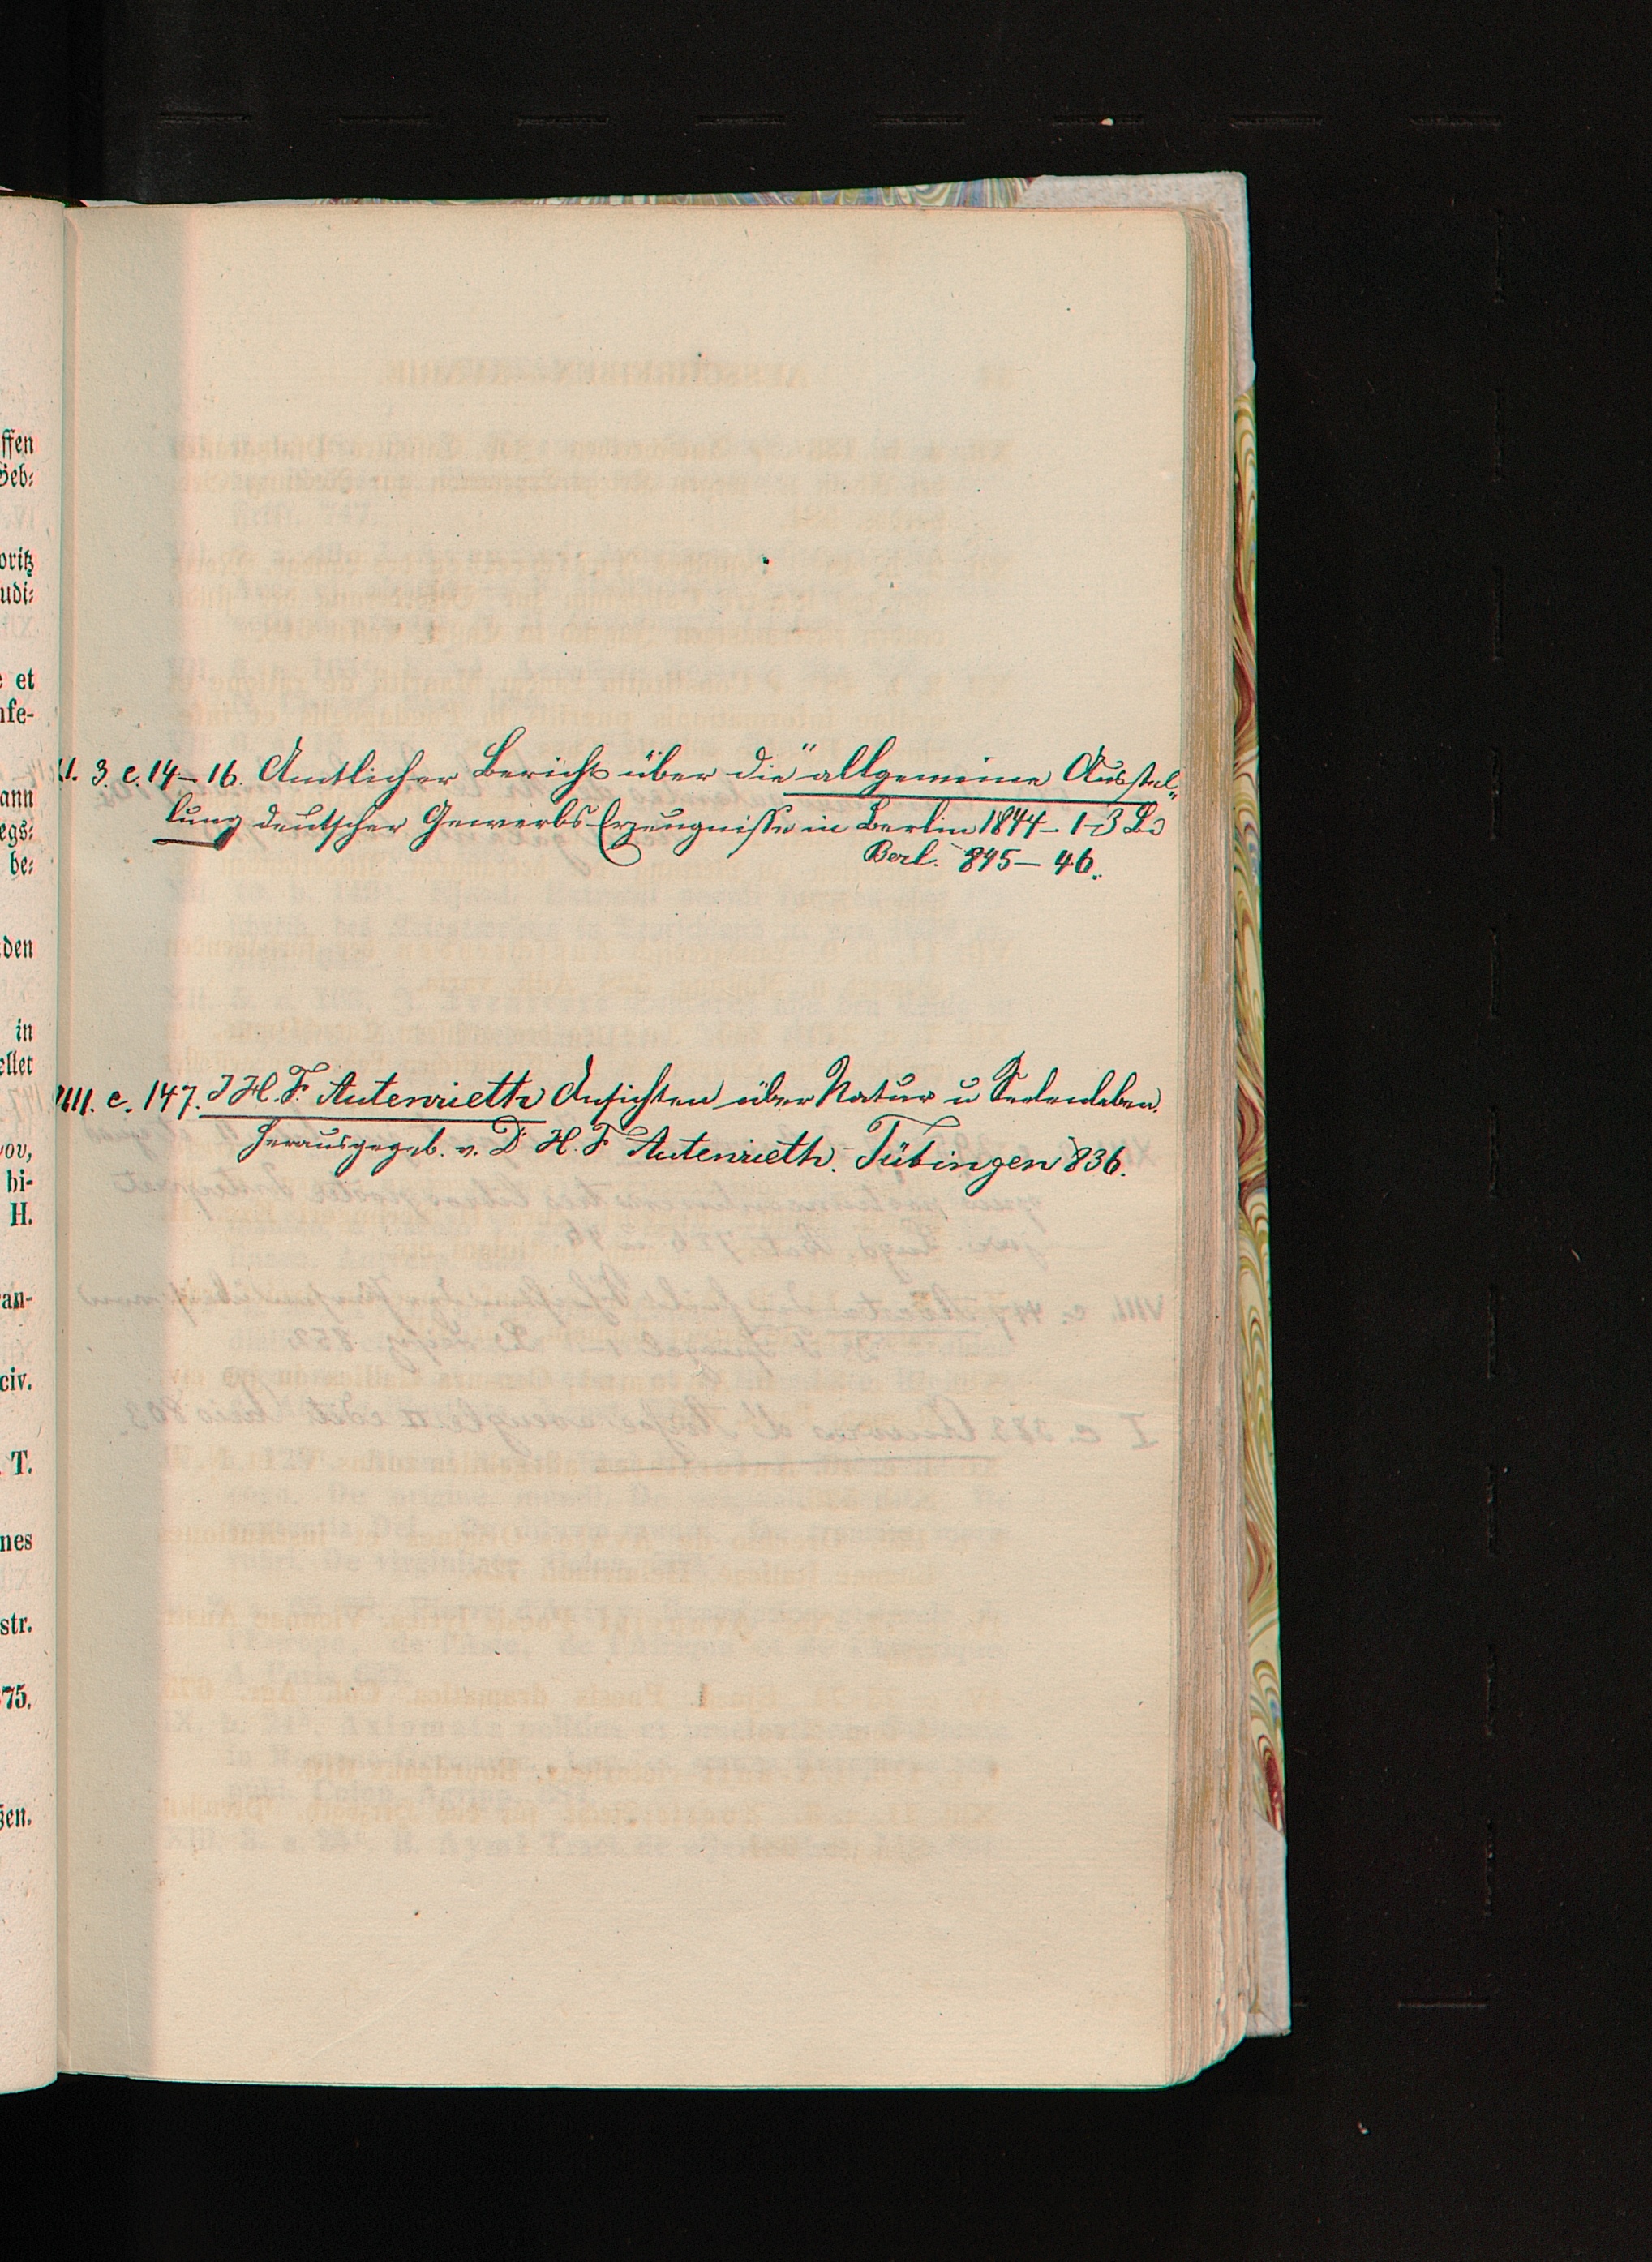 ffen
Geb:
oritz
udi:
e et
nfe-
ann
egs:
be:
den
in
eller
ov,
hi-
H.
ran-
civ.
T.
nes
str.
75.
gen.
XI. 3. c. 14–16. Amtlicher Bericht über die "allgemeine Ausstel„
lung deutscher GewerbsErzeugnisse in Berlin 1844– 1–3 Bd
Berl. 845–46.
VIII. c. 147. J H. F. Autenrieth Ansichten über Natur u Seelenleben.
herausgegeb. v. D H. F Autenrieth. Tübingen 836.